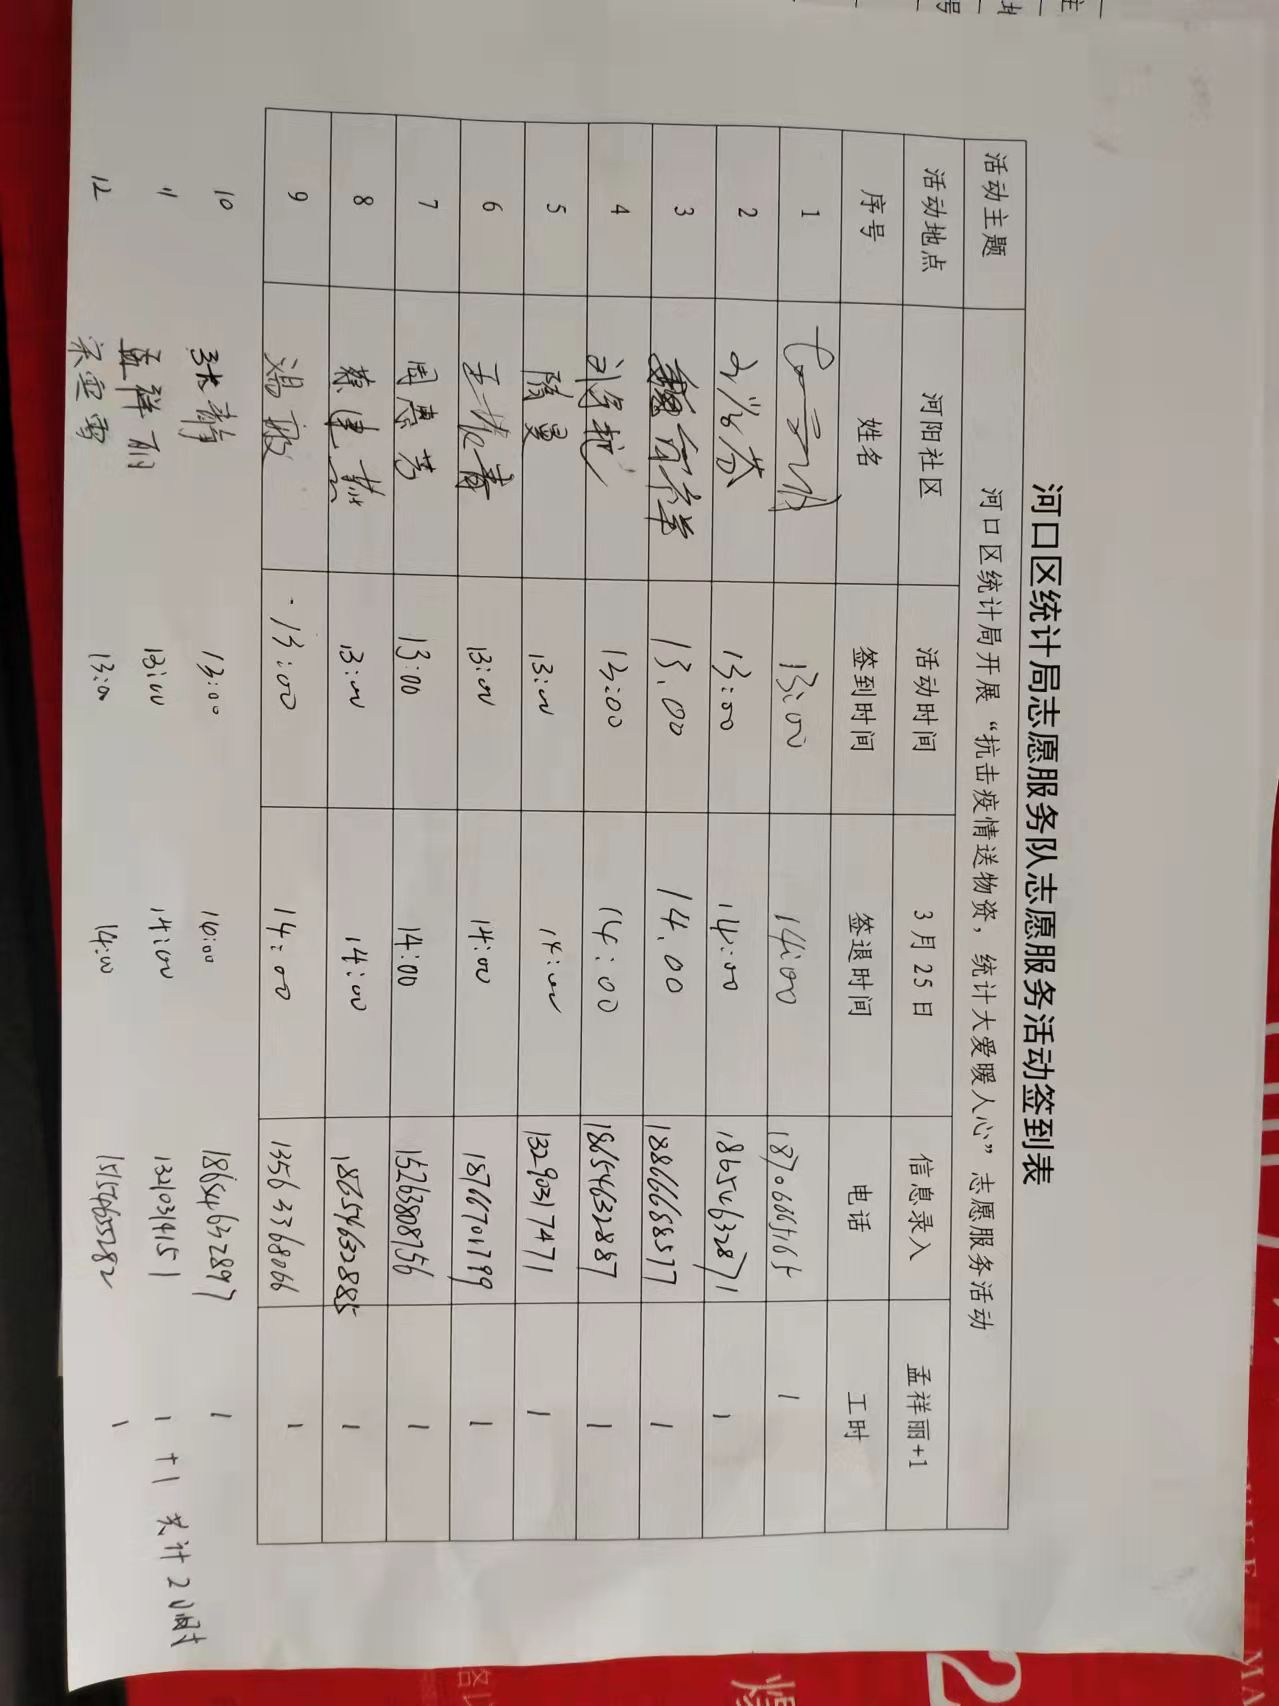 河口区统计局志愿服务队志愿服务活动签到表
活动主题 河口区统计局开展“抗击疫情送物资，统计大爱暖人心”志愿服务活动
活动地点 河阳社区 活动时间 3月25日 信息录入 孟祥丽+1
序号 姓名 签到时间 签退时间 电话 工时
1 13:00 14:00 18706665165 1
2 13:00 14:00 18654632871 1
3 13.00 14.00 18866688577 1
4 13:00 14:00 18654632887 1
5 陈曼 13:00 14:00 13290317471 1
6 13:00 14:00 18766701799 1
7 周惠芳 13:00 14:00 15263808756 1
8 蔡建燕 13:00 14:00 18654632885 1
9 13:00 14:00 13563368066 1
10 张静 13:00 14:00 18654632897 1
11 孟祥丽 13:00 14:00 13210314151 1 +1 共计2小时
12 宋雪雪 13:00 14:00 15154655282 1